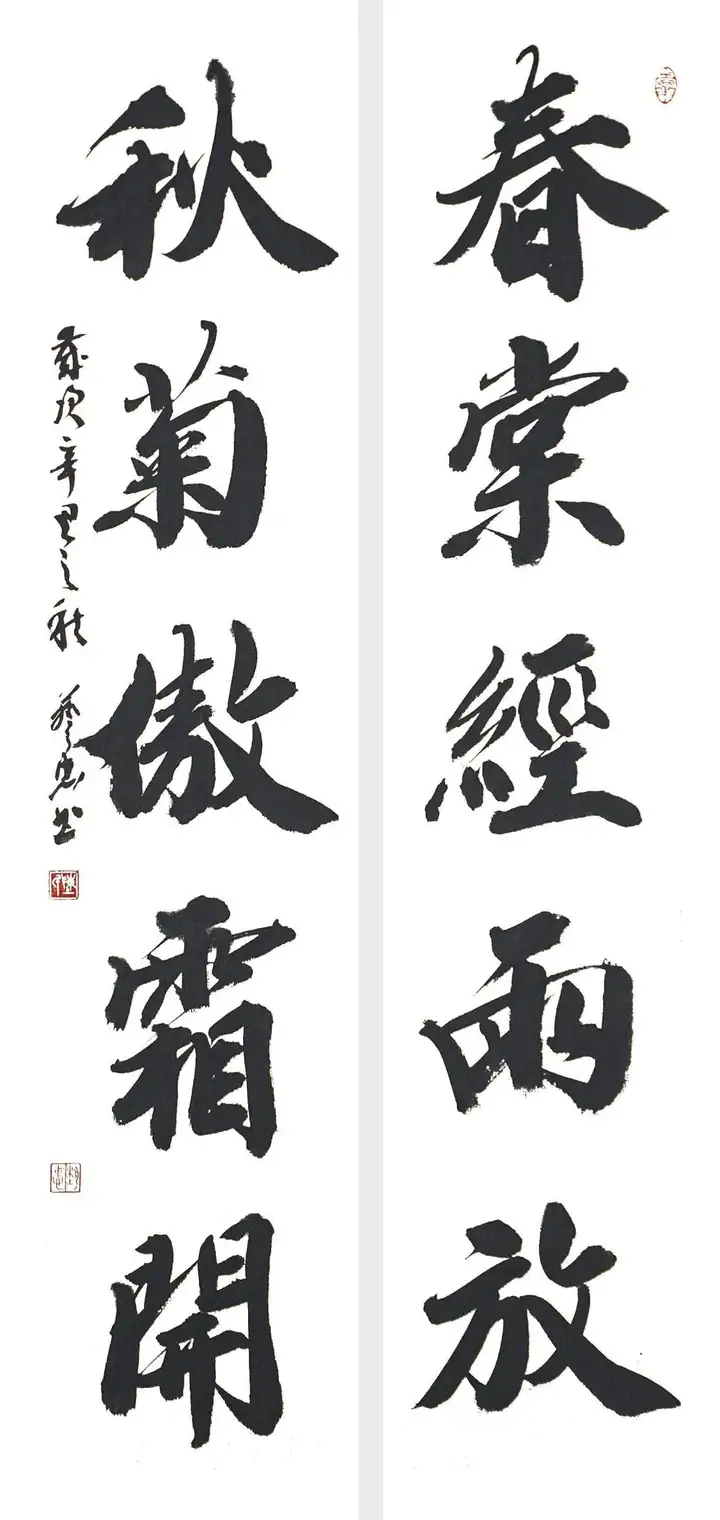 春棠經雨放
秋菊傲霜開
歲次辛丑之秋
書